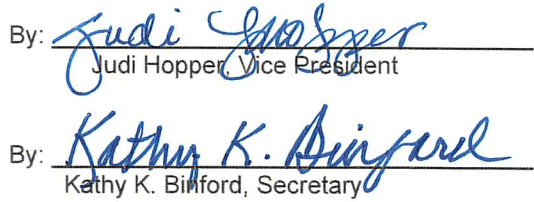 By: Judi Hopper
Judi Hopper, Vice President
By: Kathy K. Binford
Kathy K. Binford, Secretary